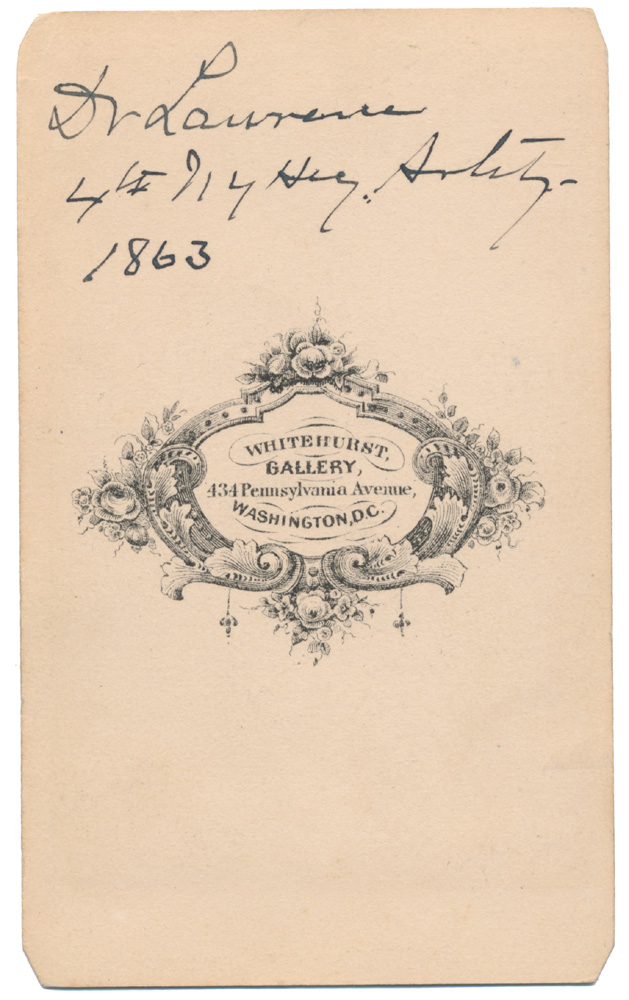 Dr Lawrence
4th N Y Hvy. Artity
1863
WHITEHURST,
GALLERY,
434 Pennsylvania Avenue,
WASHINGTON, D.C.